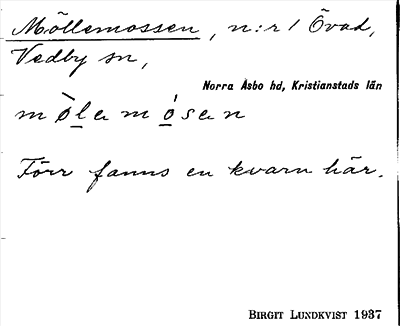 Möllemossen, n:r 1 Övad,
Vedby sn,
Norra Åsbo hd, Kristianstads län
mø̀lemósen
Förr fanns en kvarn här.
BIRGIT LUNDKVIST 1937